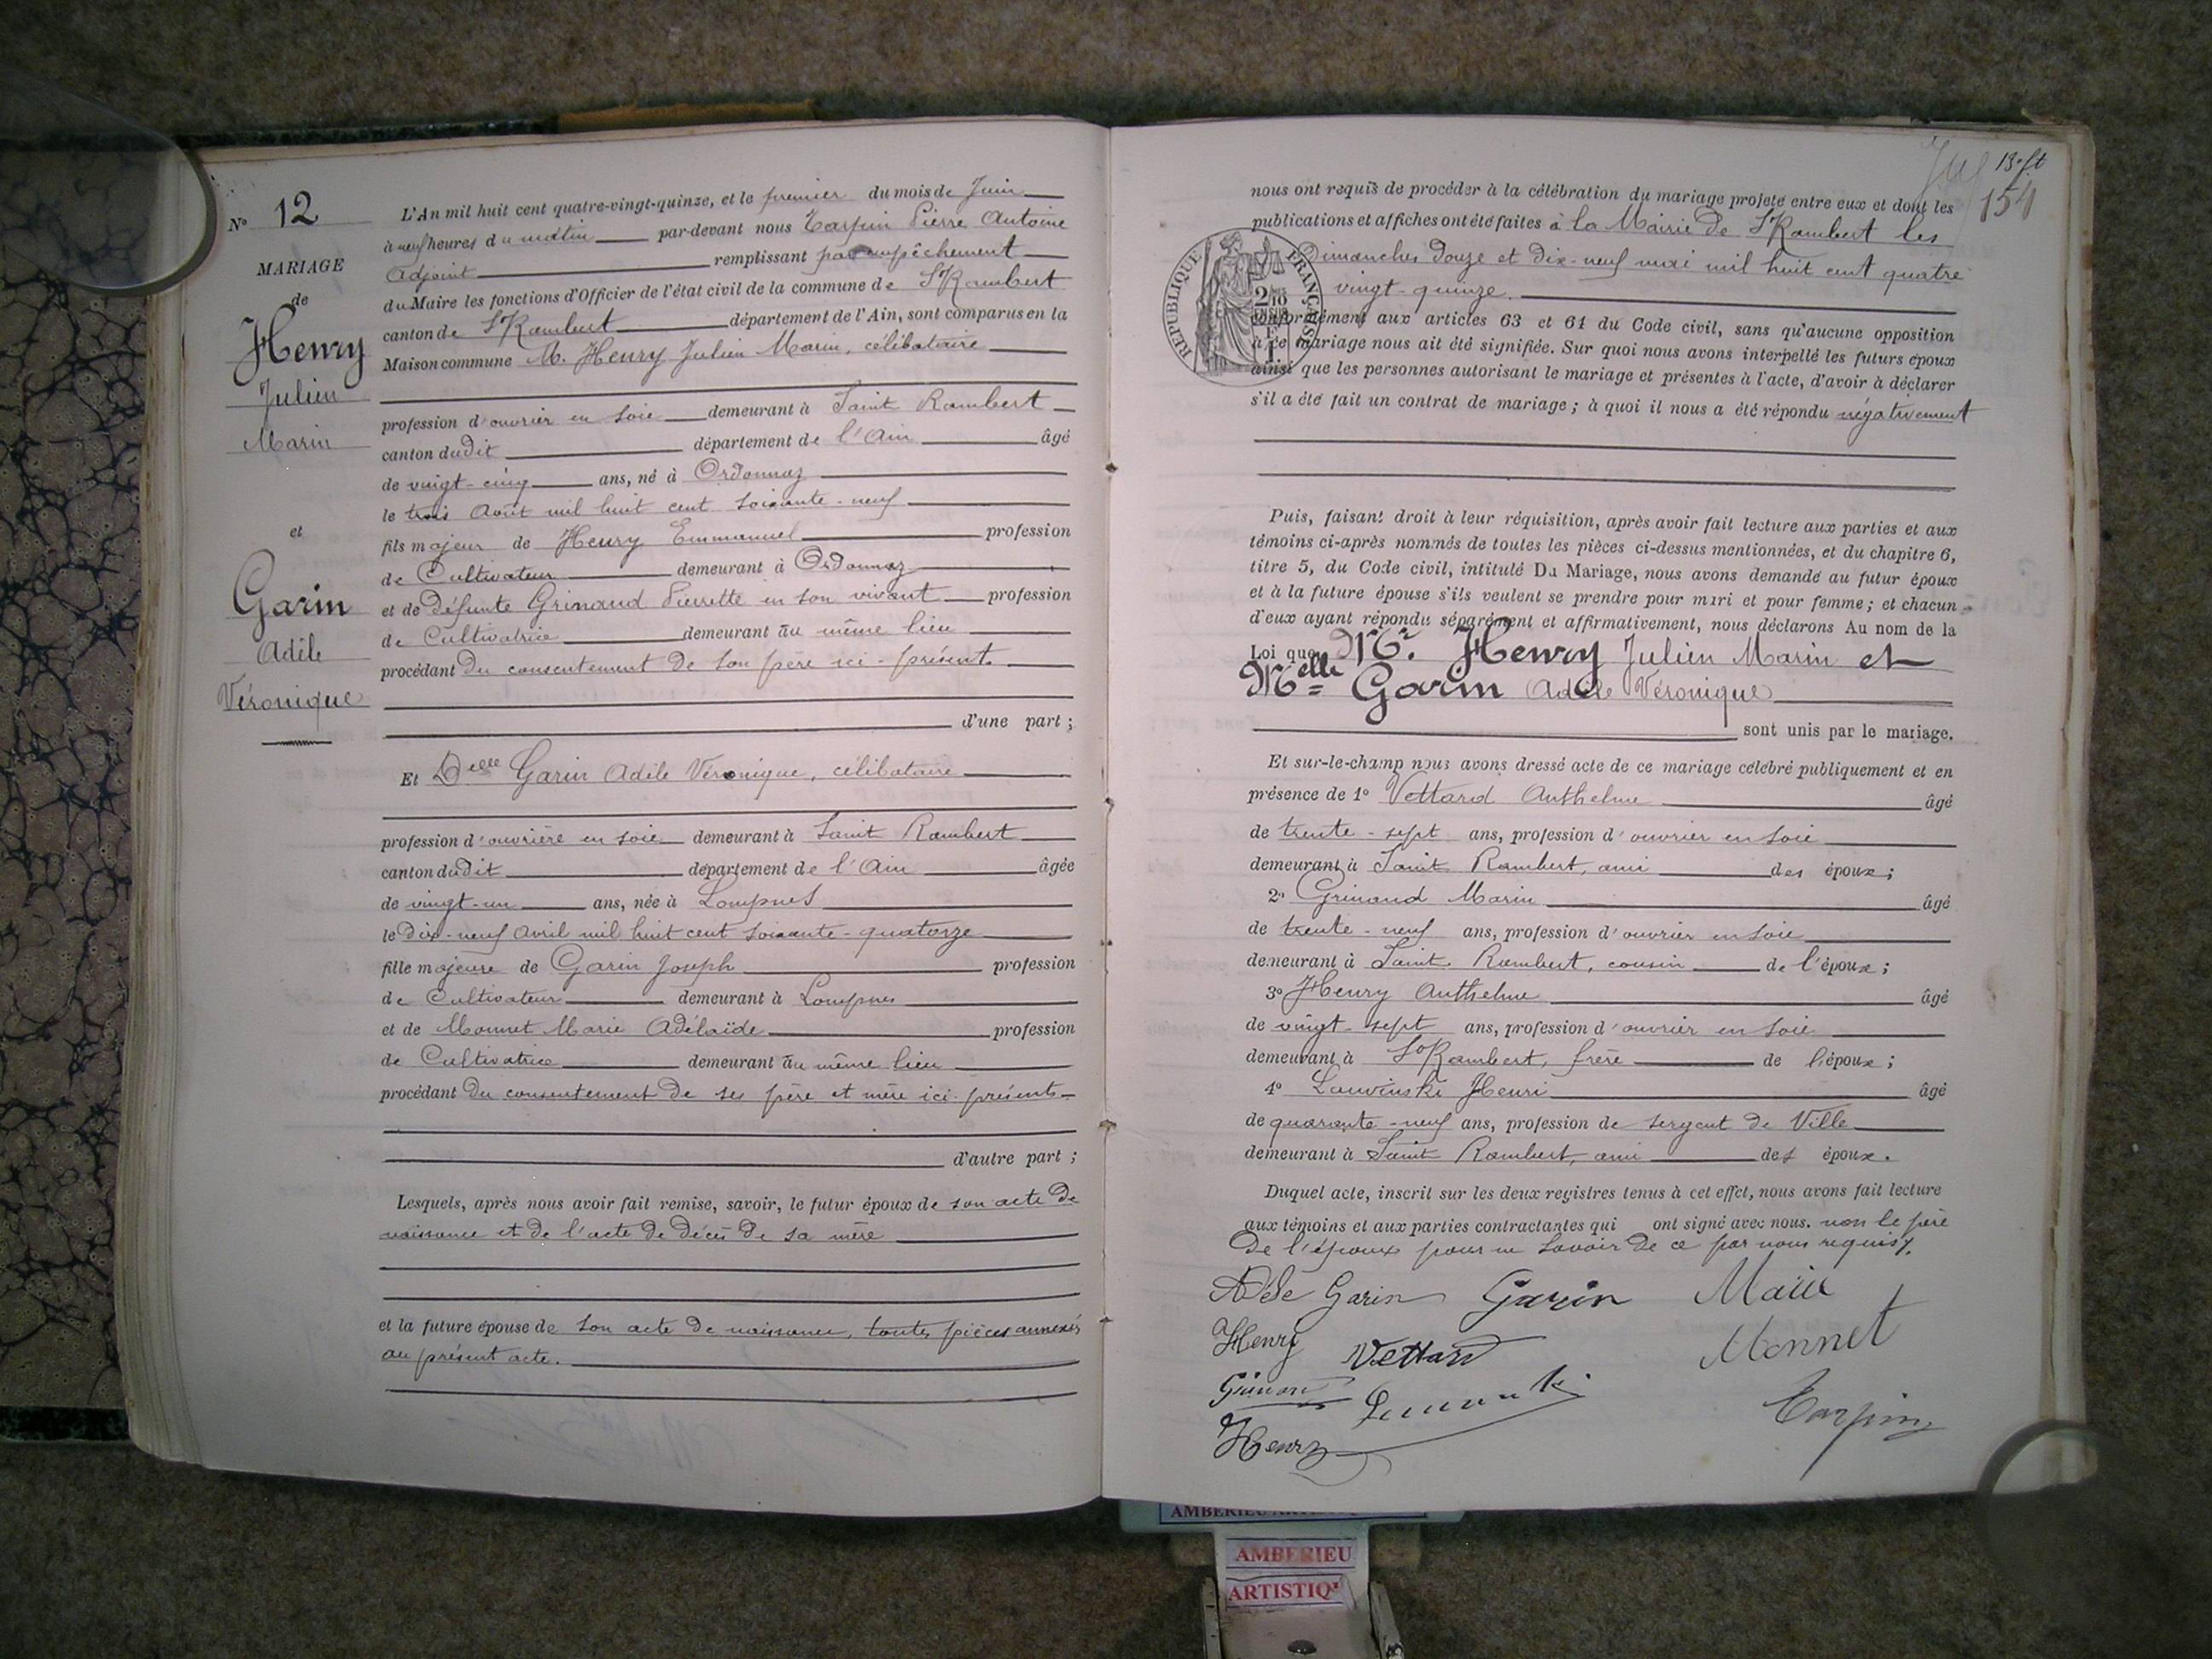 N° 12
MARIAGE
de
Henry
Julien
Marin
et
Garin
Adèle
Véronique
L'An mil huit cent quatre-vingt-quinze, et le premier du mois de Juin
à neuf heures du matin par-devant nous Tarpin Pierre Antoine
Adjoint remplissant par empêchement
du Maire les fonctions d'Officier de l'état civil de la commune de St Rambert
canton de St Rambert département de l'Ain, sont comparus en la
Maison commune M. Henry Julien Marin, célibataire
profession d'ouvrier en soie demeurant à Saint Rambert
canton dudit département de l'Ain âgé
de vingt-cinq ans, né à Ordonnaz
le trois Août mil huit cent soixante-neuf
fils majeur de Henry Emmanuel profession
de Cultivateur demeurant à Ordonnaz
et de défunte Grinand Pierrette en son vivant profession
de Cultivatrice demeurant au même lieu
procédant du consentement de son père ici-présent.
d'une part ;
Et Delle Garin Adèle Véronique, célibataire
profession d'ouvrière en soie demeurant à Saint Rambert
canton dudit département de l'Ain âgée
de vingt-un ans, née à Lompnes
le dix-neuf Avril mil huit cent soixante-quatorze
fille majeure de Garin Joseph profession
de Cultivateur demeurant à Lompnes
et de Monnet Marie Adélaïde profession
de Cultivatrice demeurant au même lieu
procédant du consentement de ses père et mère ici-présents
d'autre part ;
Lesquels, après nous avoir fait remise, savoir, le futur époux de son acte de
naissance et de l'acte de décès de sa mère
et la future épouse de son acte de naissance, toutes pièces annexées
au présent acte.
154
nous ont requis de procéder à la célébration du mariage projeté entre eux et dont les
publications et affiches ont été faites à la Mairie de St Rambert les
Dimanches douze et dix-neuf mai mil huit cent quatre
vingt-quinze.
RÉPUBLIQUE FRANÇAISE
conformément aux articles 63 et 64 du Code civil, sans qu'aucune opposition
à ce mariage nous ait été signifiée. Sur quoi nous avons interpellé les futurs époux
ainsi que les personnes autorisant le mariage et présentes à l'acte, d'avoir à déclarer
s'il a été fait un contrat de mariage ; à quoi il nous a été répondu négativement
Puis, faisant droit à leur réquisition, après avoir fait lecture aux parties et aux
témoins ci-après nommés de toutes les pièces ci-dessus mentionnées, et du chapitre 6,
titre 5, du Code civil, intitulé Du Mariage, nous avons demandé au futur époux
et à la future épouse s'ils veulent se prendre pour mari et pour femme ; et chacun
d'eux ayant répondu séparément et affirmativement, nous déclarons Au nom de la
Loi que Mr. Henry Julien Marin et
Melle Garin Adèle Véronique
sont unis par le mariage.
Et sur-le-champ nous avons dressé acte de ce mariage célébré publiquement et en
présence de 1° Vettard Anthelme âgé
de trente-sept ans, profession d'ouvrier en soie
demeurant à Saint Rambert, ami des époux ;
2° Grinand Marin âgé
de trente-neuf ans, profession d'ouvrier en soie
demeurant à Saint Rambert, cousin de l'époux ;
3° Henry Anthelme âgé
de vingt-sept ans, profession d'ouvrier en soie
demeurant à St Rambert, frère de l'époux ;
4° Lauvinski Henri âgé
de quarante-neuf ans, profession de sergent de Ville
demeurant à Saint Rambert, ami des époux.
Duquel acte, inscrit sur les deux registres tenus à cet effet, nous avons fait lecture
aux témoins et aux parties contractantes qui ont signé avec nous. non le père
de l'époux pour ne savoir de ce par nous requis.
Adèle Garin Garin Marie
Henry Vettard Monnet
Grinand
Tarpin
Henry
AMBERIEU
AMBERIEU
ARTISTIQ